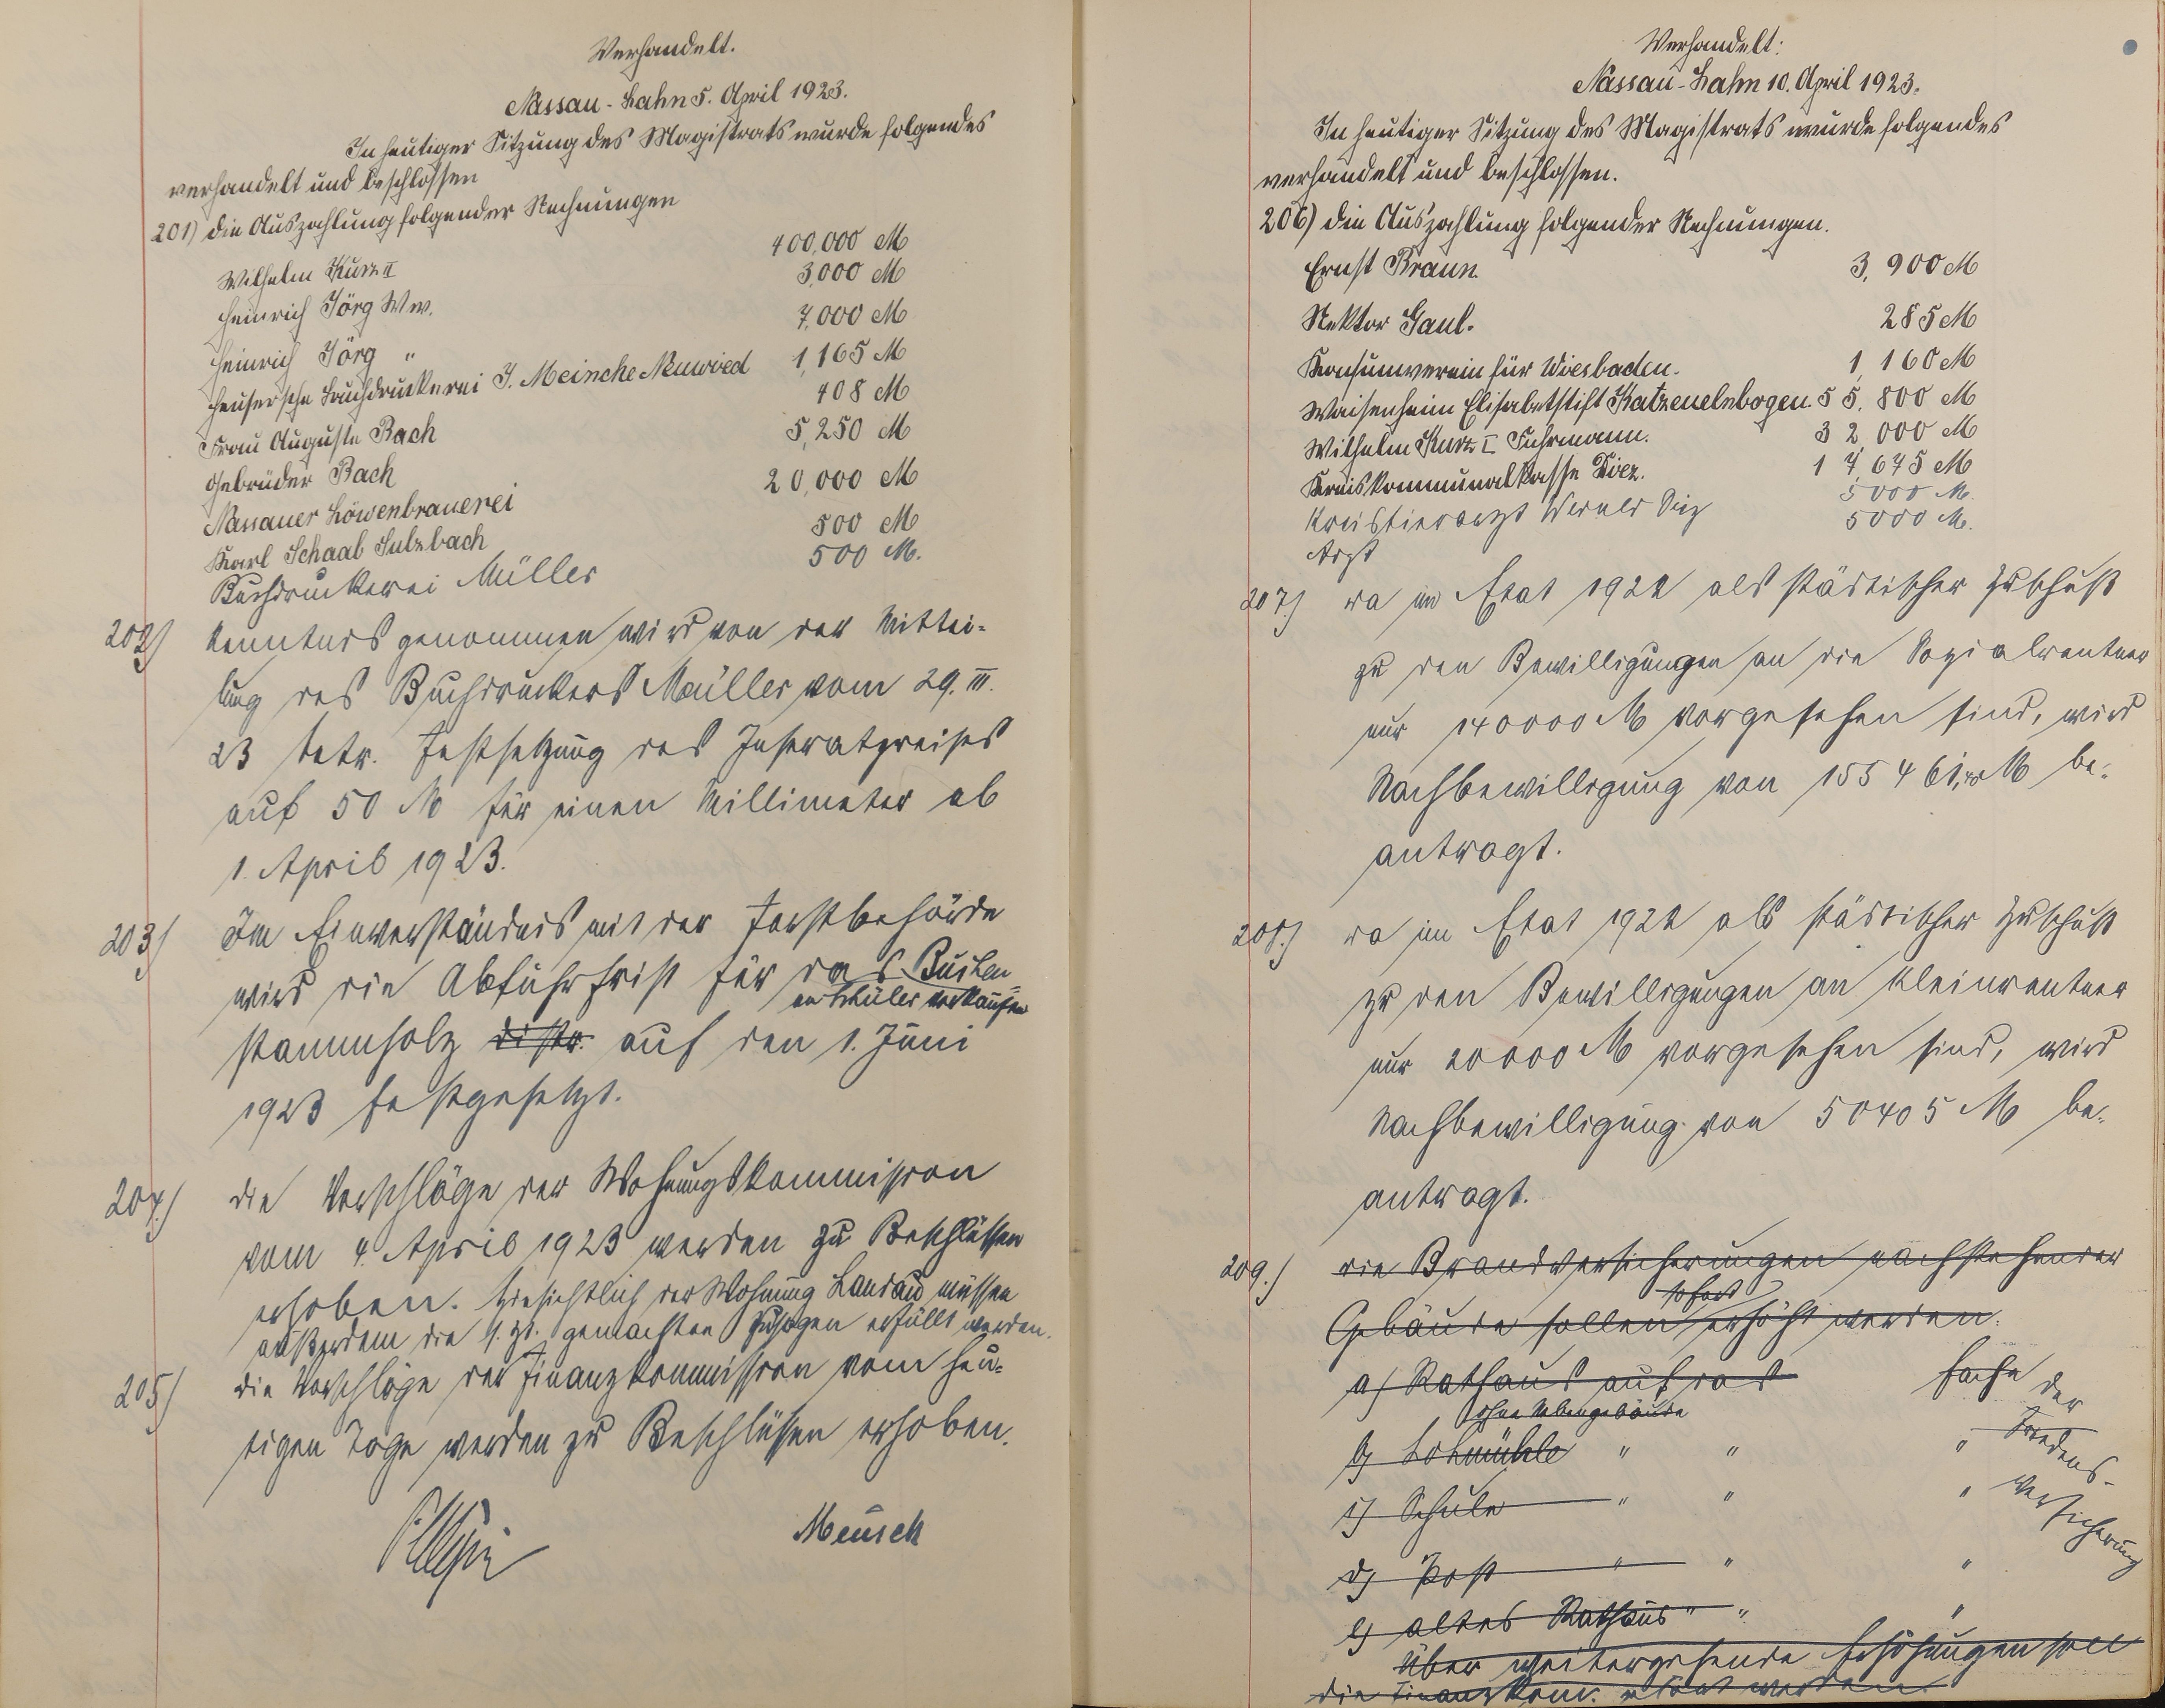 Verhandelt.
Nassau-Lahn 5. April 1923.
In heutiger Sitzung des Magistrats wurde folgendes
verhandelt und beschlossen
201) die Auszahlung folgender Rechnungen
Wilhelm Kurz II 400,000 M
Heinrich Jörg Ww. 3,000 M
Heinrich Jörg " 7,000 M
Heusersche Buchdruckerei J. Meincke Neuwied 1,165 M
Frau Auguste Bach 408 M
Gebrüder Bach 5,250 M
Nassauer Löwenbrauerei 20,000 M
Karl Schaab Sulzbach 500 M
Buchdruckerei Müller 500 M.
202) Kenntnis genommen wird von der Mittei-
lung des Buchdruckers Müller vom 29. III.
23 betr. Festsetzung des Inseratpreises
auf 50 M für einen Millimeter ab
1. April 1923.
203) Im Einverständnis mit der Forstbehörde
wird die Abfuhrfrist für das Buchen-
an Schüler verkaufte
stammholz distr. auf den 1. Juni
1923 festgesetzt.
204.) die Vorschläge der Wohnungskommission
vom 4. April 1923 werden zu Beschlüssen
erhoben. Hinsichtlich der Wohnung Landau müssen
außerdem die s. Zt. gemachten Zusagen erfüllt werden.
205) die Vorschläge der Finanzkommission vom heu-
tigen Tage werden zu Beschlüssen erhoben.
Meusch
Verhandelt:
Nassau-Lahn 10. April 1923.
In heutiger Sitzung des Magistrats wurde folgendes
verhandelt und beschlossen.
206) die Auszahlung folgender Rechnungen.
Ernst Braun 3,900 M
Rektor Gaul. 285 M
Konsumverein für Wiesbaden. 1,160 M
Waisenheim Elisabetstift Katzenelnbogen. 55,800 M
Wilhelm Kurz I Fuhrmann. 32,000 M
Kreiskommunalkasse Diez. 17,675 M
Kreistierarzt Werner Diez 5000 M.
Arzt 5000 M.
207.) da im Etat 1922 als städtischer Zuschuß
zu den Bewilligungen an die Sozialrentner
nur 140000 M vorgesehen sind, wird
Nachbewilligung von 155461, M be-
antragt.
208.) da im Etat 1922 als städtischer Zuschuß
zu den Bewilligungen an Kleinrentner
nur 20000 M vorgesehen sind, wird
Nachbewilligung von 50405 M be-
antragt.
209.) die Brandversicherungen nachstehender
sofort
Gebäude sollen erhöht werden.
a) Rathaus auf das fache der
ohne Nebengebäude
b) Lohmühle " " " Friedens-
c) Schule " " " versicherung
d) Post " " "
e) altes Rathaus " " "
Über weitergehende Erhöhungen soll
die Finanzkom. werden.